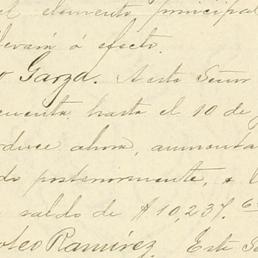 el elemento principal
llevará á efecto.
Garza. A este Señor
cuenta hasta el 10 de
duce ahora, aumenta
do posteriormente, a l
saldo de $10,237.
oteo Ramírez. Este S